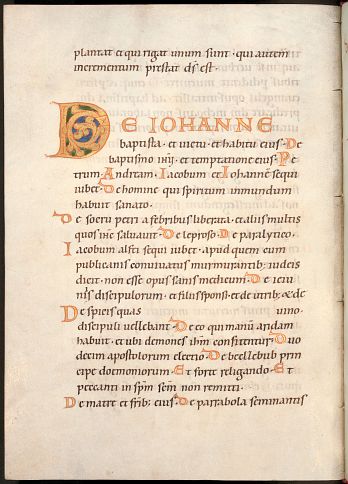 plantat et qui rigat unum sunt · qui autem
incrementum prestat ds est ·
DE IOHANNE
baptista · et uictu et habitu eius · De
baptismo ihu · et temptatione eius · Pe
trum · Andream · Iacobum et Iohanne sequi
iubet · De homine qui spiritum inmundum
habuit sanato ·
De socru petri a febribus liberata · et aliis multis
quos ihc saluauit · De leproso · De paralytico ·
Iacobum alfei sequi iubet · apud quem cum
publicanis conuiuatus murmurantib; iudeis
dicit · non esse opus sanis medicum · De ieiu
niis discipulorum · et filiis sponsi · et de utrib; & de
De spicis quas uino ·
discipuli uellebant · De eo qui manum aridam
habuit · et ubi demones ihm confitentur · Duo
decim apostolorum electio · De beelzebub prin
cipe doemoniorum · Et forte religando · Et
peccanti in spm scm non remitti ·
De matre et frib; eius · De parabola seminantis